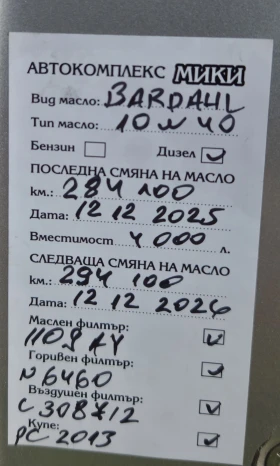 АВТОКОМПЛЕКС МИКИ
Вид масло: BARDAHL
Тип масло: 10 W 40
Бензин Дизел
ПОСЛЕДНА СМЯНА НА МАСЛО
км.: 284 100
Дата: 12 12 2025
Вместимост 4 000 л.
СЛЕДВАЩА СМЯНА НА МАСЛО
км.: 294 100
Дата: 12 12 2026
Маслен филтър:
Горивен филтър:
N 6460
Въздушен филтър:
C 308712
Купе:
PC 2013